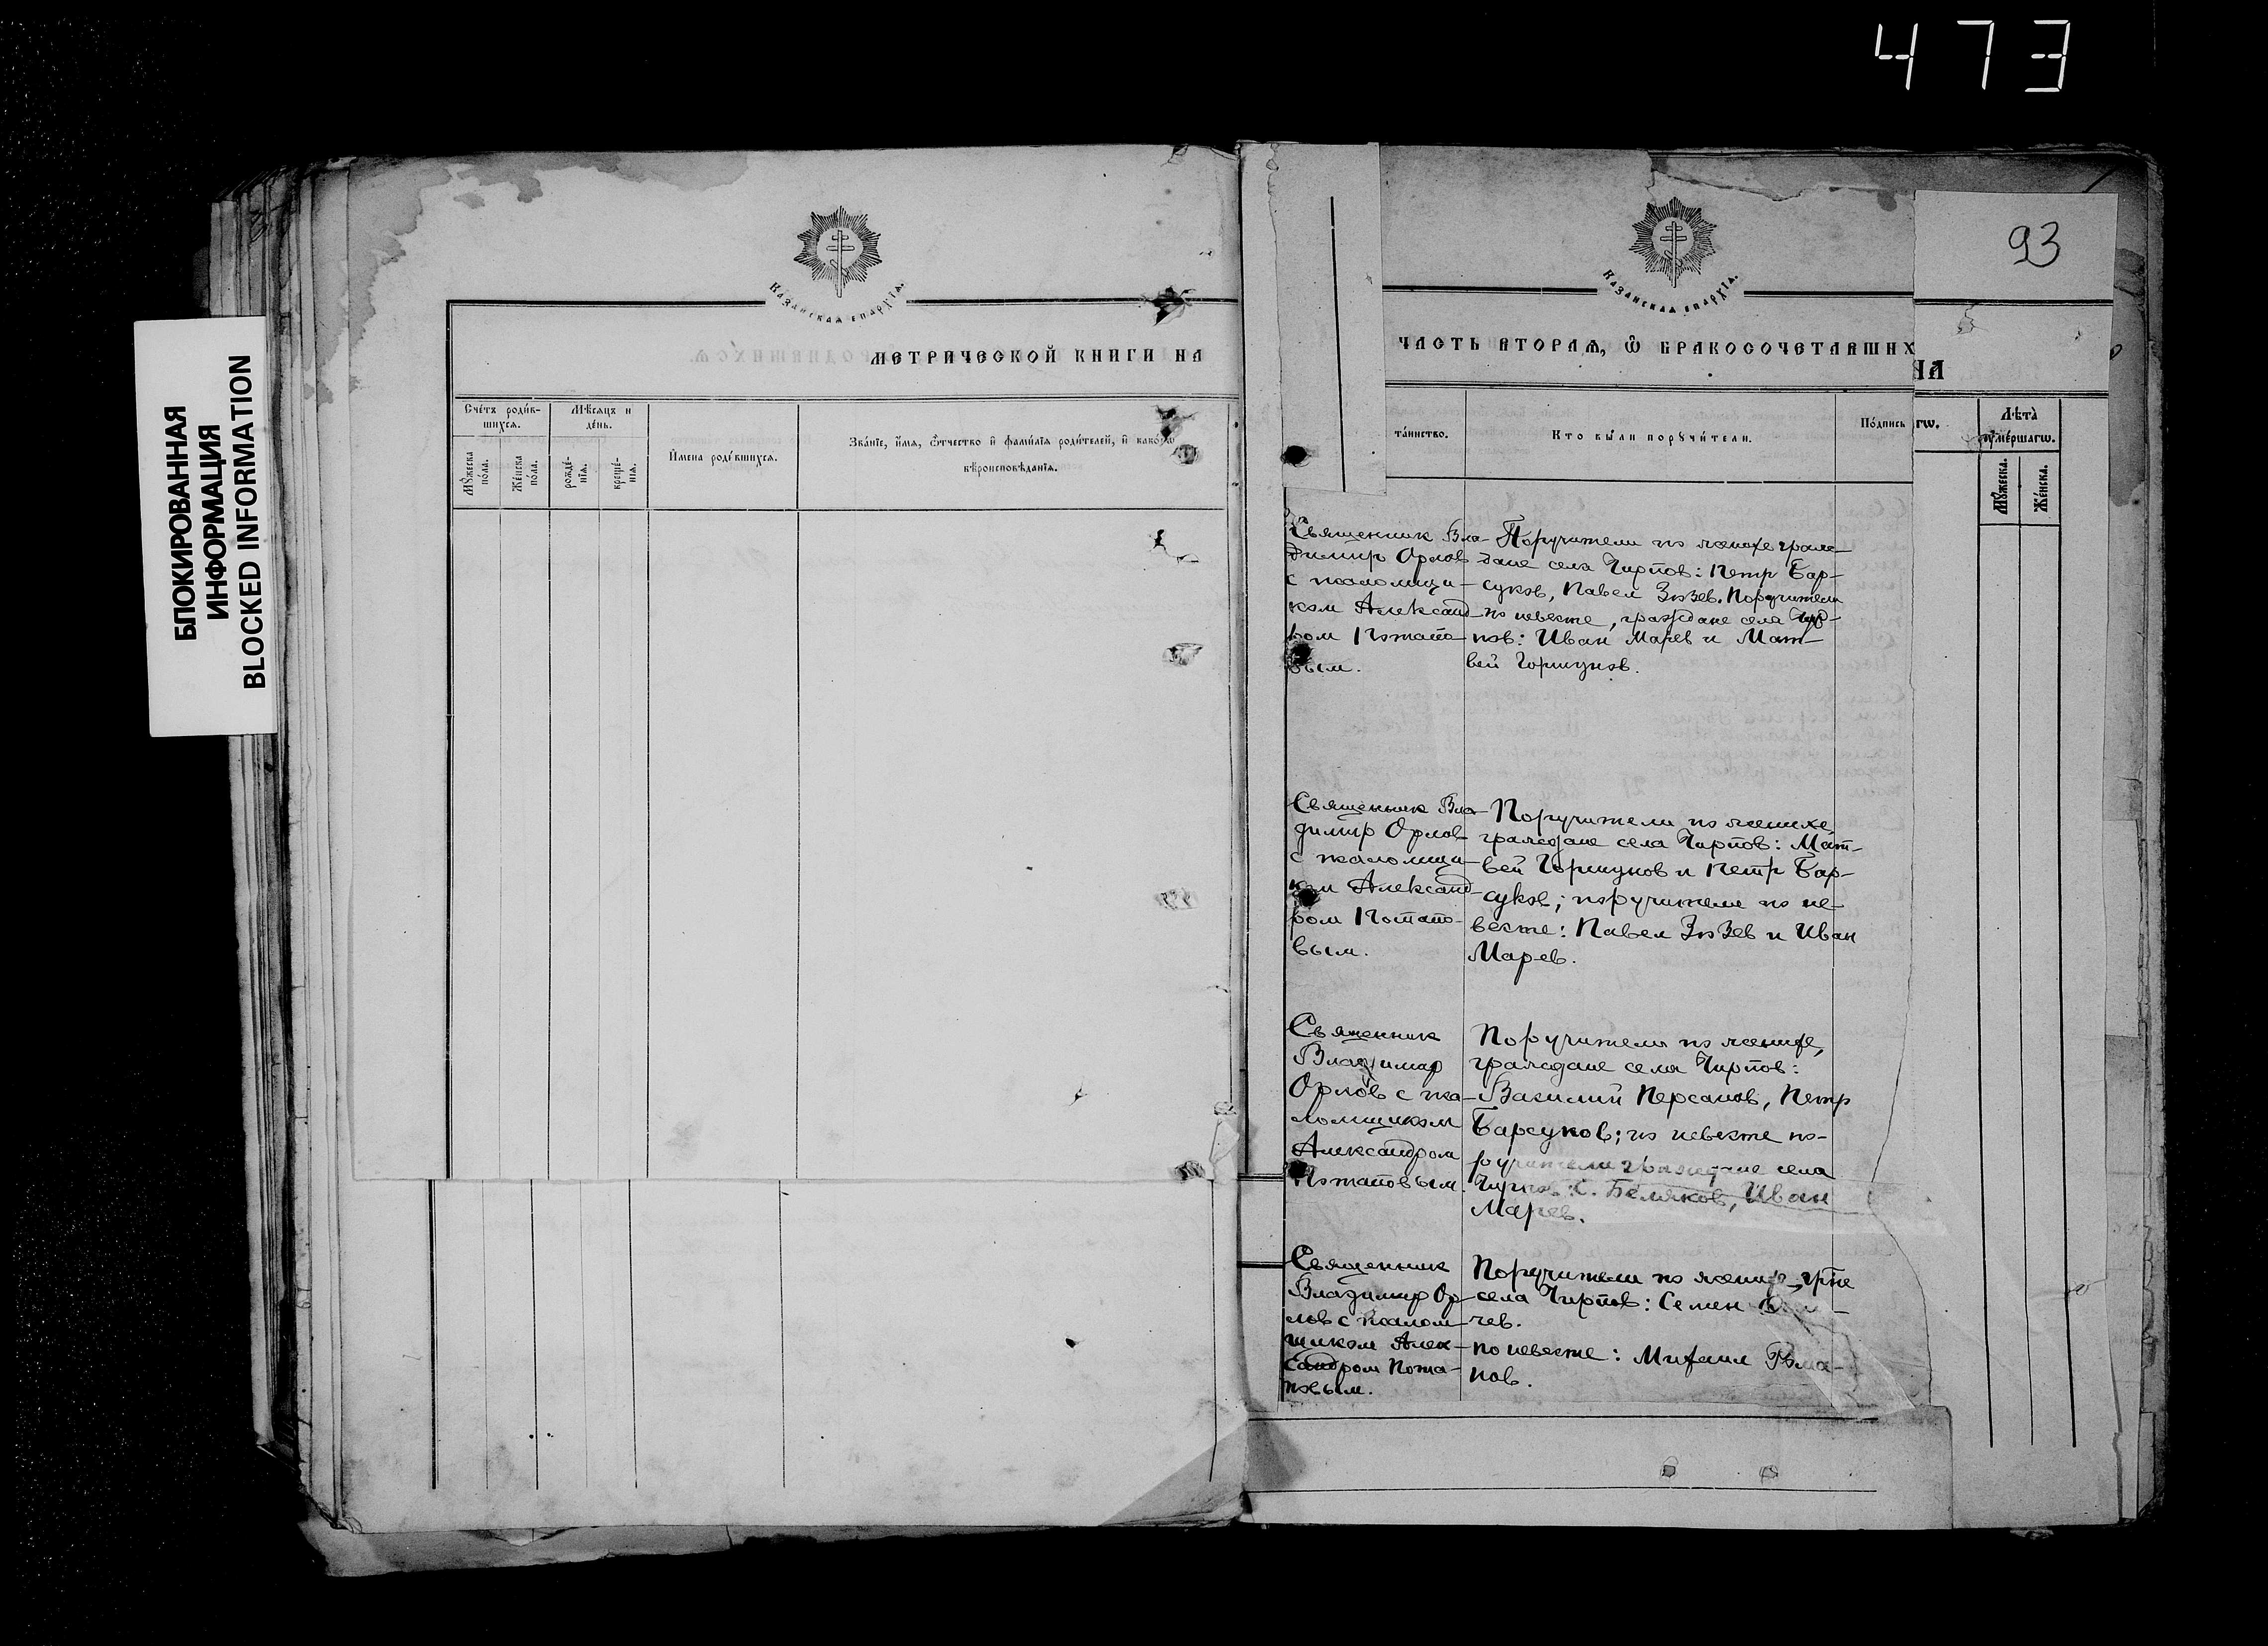 473
БЛОКИРОВАННАЯ
ИНФОРМАЦИЯ
BLOCKED INFORMATION
КАЗАНСКАЯ ЕПАРХІА.
МЕТРИЧЕСКОЙ КНИГИ НА
Сче́тъ роди́в-
шихсѧ.
Мѣ́сѧцъ и
де́нь.
Мꙋ́жеска
по́ла.
Же́нска
по́ла.
рожде́-
нїѧ.
креще́-
нїѧ.
И҆мена̀ роди́вшихсѧ.
Зва́нїе, и҆́мѧ, ѻ҆́тчество и҆ фами́лїѧ роди́телей, и҆ како́гѡ
вѣроисповѣ́данїѧ.
КАЗАНСКАЯ ЕПАРХІА.
93
ЧАСТЬ ВТОРАѦ, Ѿ БРАКОСОЧЕТАВШИХ
та́инство.
Кто̀ бы́ли порꙋчи́тели.
По́дпись
гѡ.
Лѣ́та
ᲂу҆ме́ршагѡ.
Мꙋ́жеска.
Же́нска.
Священник Вла-
димир Орлов
с псаломщи-
ком Александ-
ром Потапо-
вым.
Поручители по женихе граж-
дане села Чирпов: Петр Бар-
суков, Павел Зюзев. Поручители
по невесте, граждане села Чир-
пов: Иван Марев и Мат-
вей Горшунов.
Священник Вла-
димир Орлов
с псаломщи-
ком Александ-
ром Потапо-
вым.
Поручители по женихе,
граждане села Чирпов: Мат-
вей Горшунов и Петр Бар-
суков; поручители по не-
весте: Павел Зюзев и Иван
Марев.
Священник
Владимир
Орлов с пса-
ломщиком
Александром
Потаповым.
Поручители по женихе,
граждане села Чирпов:
Василий Персанов, Петр
Барсуков; по невесте по-
ручители граждане села
Чирпов: С. Беляков, Иван
Марев.
Священник
Владимир Ор-
лов с псалом-
щиком Алек-
сандром Пота-
повым.
Поручители по женихе, гр-не
села Чирпов: Семен
чев.
по невесте: Михаил Рома-
нов.